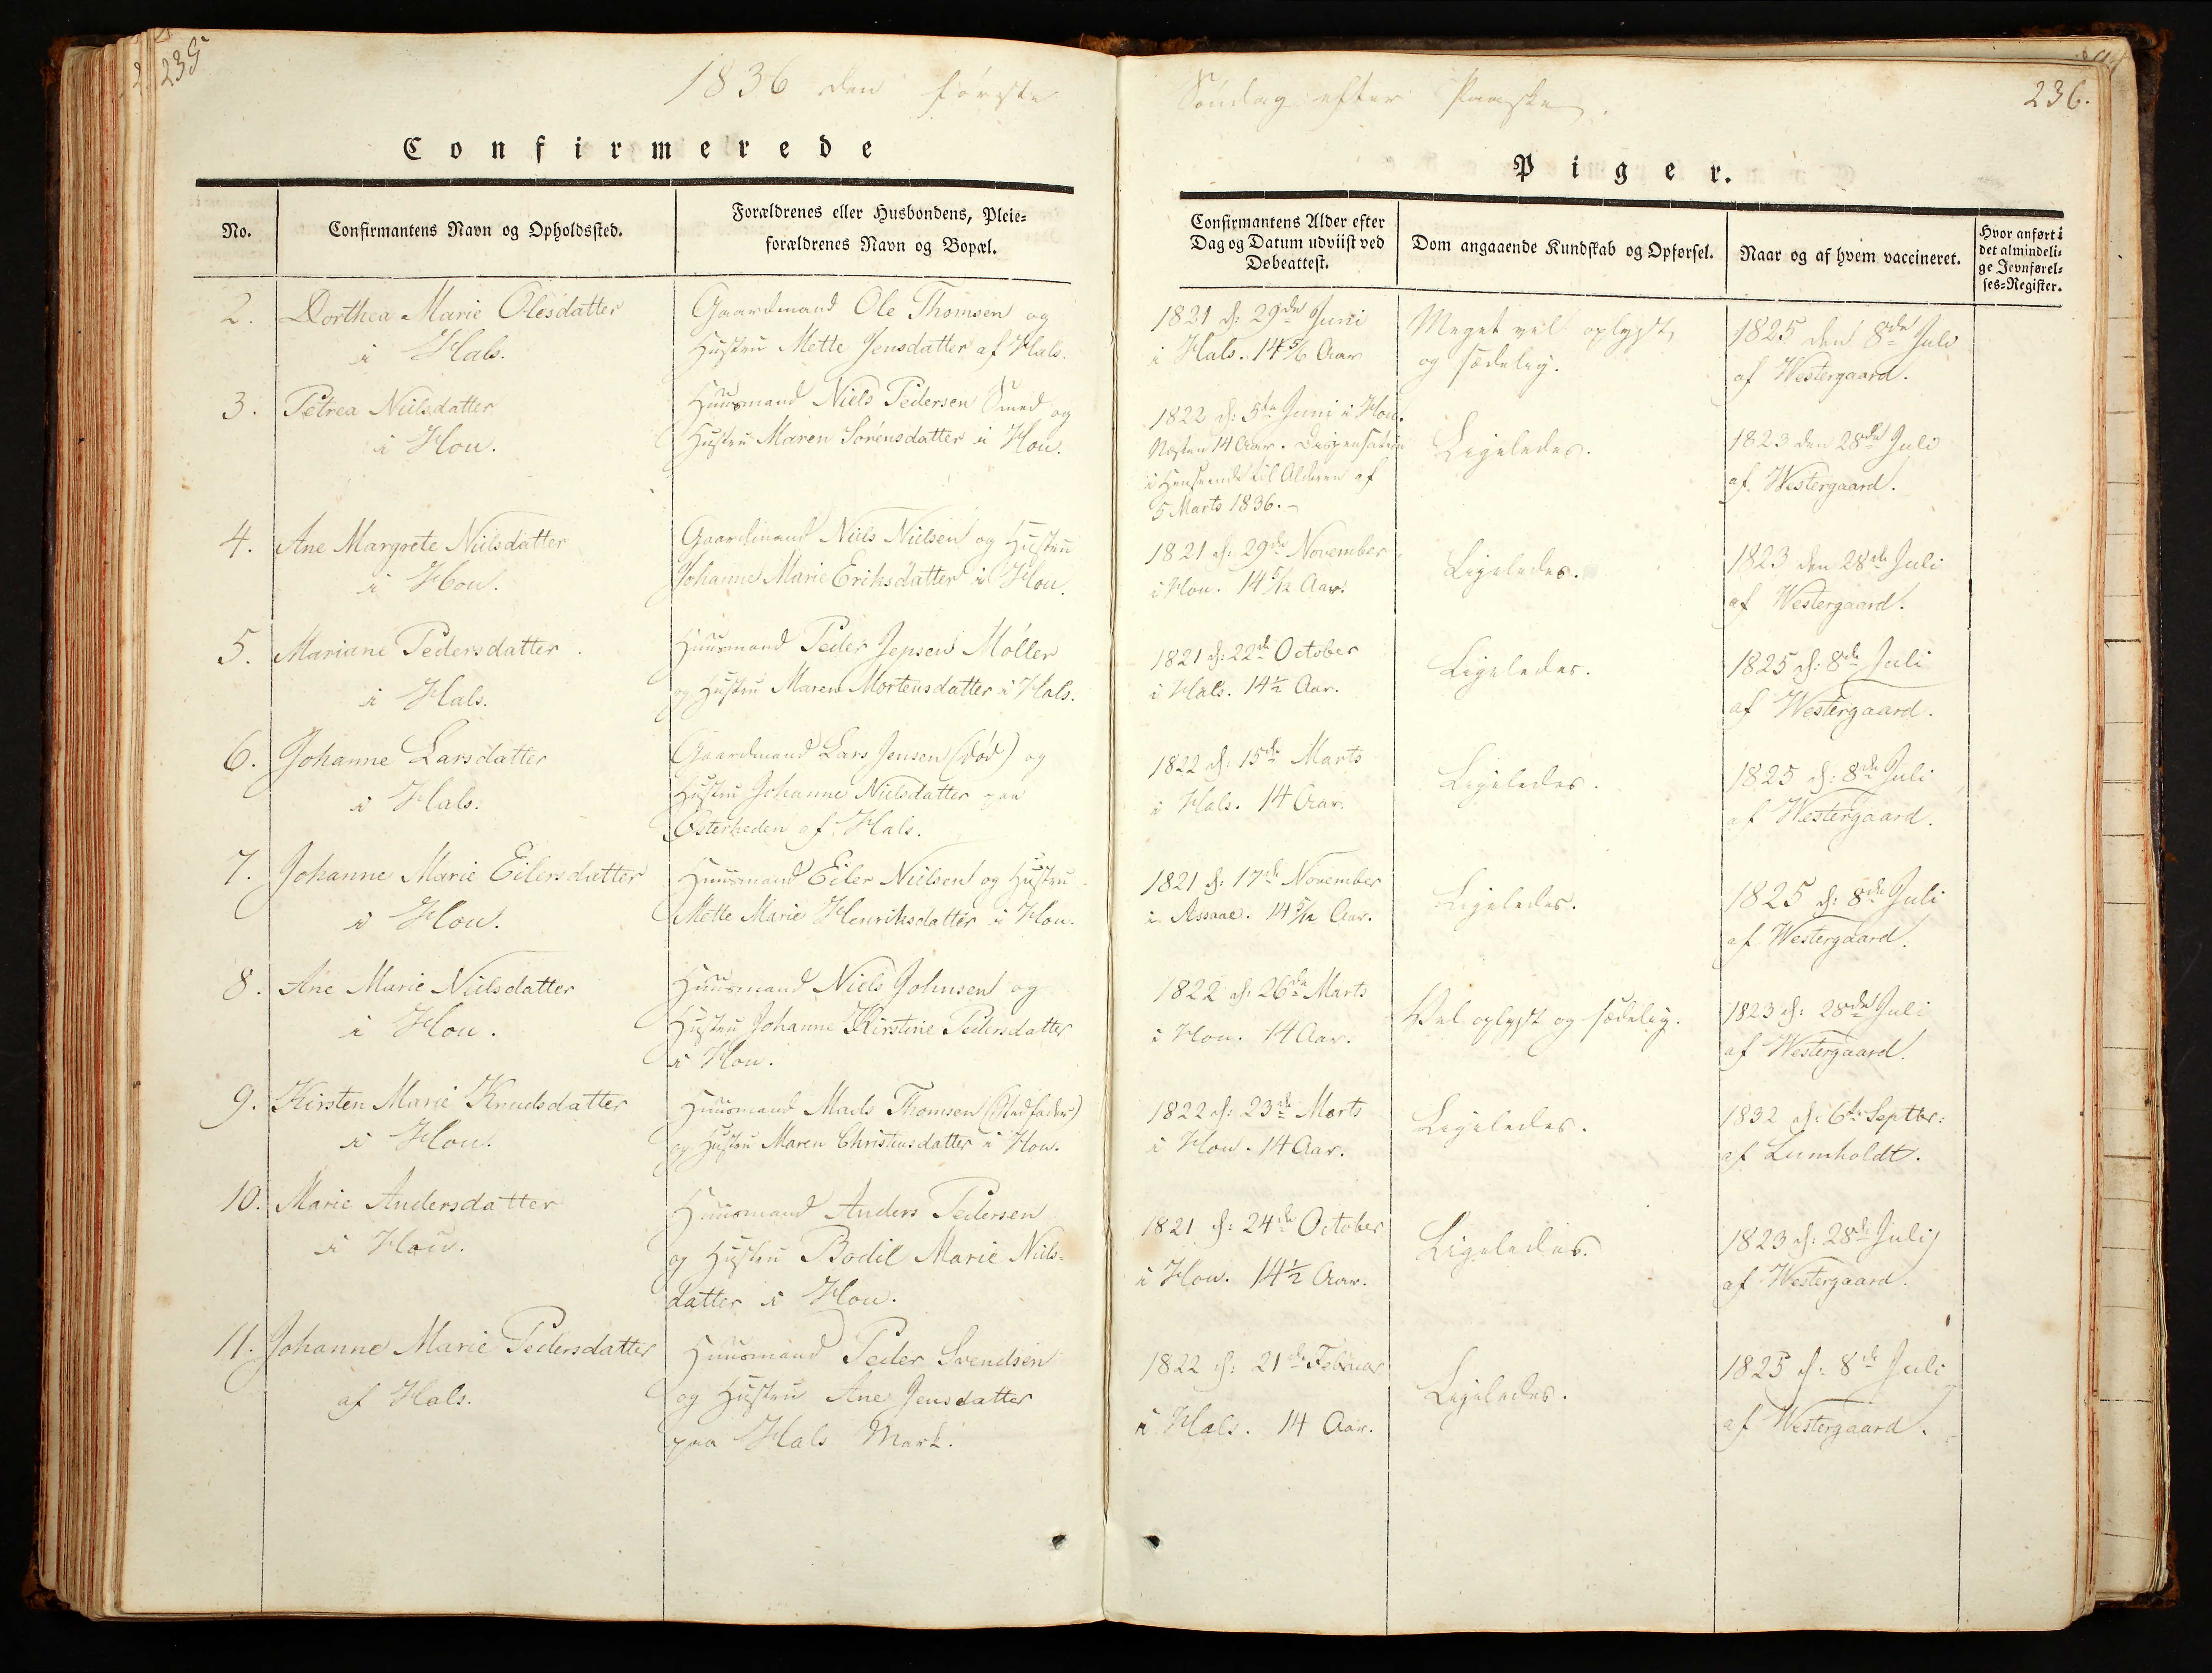 235
1836 den förste
Confirmerede
No.
Confirmantens Navn og Opholdssted.
Forældrenes eller Husbondens, Pleie-
forældrenes Navn og Bopæl.
2. Dorthea Marie Olesdatter
i Hals.
Gaardmand Ole Thomsen og
Hustru Mette Jensdatter af Hals.
3. Petrea Nielsdatter
i Hou.
Huusmand Niels Pedersen Smed og
Hustru Maren Sörensdatter i Hou.
4. Ane Margrete Nielsdatter
i Hou.
Gaardmand Niels Nielsen og Hustru
Johanne Marie Eriksdatter i Hou.
5. Mariane Pedersdatter
i Hals.
Huusmand Peder Jepsen Möller
og Hustru Maren Mortensdatter i Hals.
6. Johanne Larsdatter
i Hals.
Gaardmand Lars Jensen (död) og
Hustru Johanne Nielsdatter paa
Österheden af Hals.
7. Johanne Marie Eilersdatter
i Hou.
Huusmand Eiler Nielsen og Hustru
Mette Marie Henriksdatter i Hou.
8. Ane Marie Nielsdatter
i Hou.
Huusmand Niels Johnsen og
Hustru Johanne Kirstine Pedersdatter
i Hou.
9. Kirsten Marie Knudsdatter
i Hou.
Huusmand Mads Thomsen (Stedfader)
og Hustru Maren Christensdatter i Hou.
10. Marie Andersdatter
i Hou.
Huusmand Anders Pedersen
og Hustru Bodil Marie Niels-
datter i Hou.
11. Johanne Marie Pedersdatter
af Hals.
Huusmand Peder Svendsen
og Hustru Ane Jensdatter
paa Hals Mark.
236.
Söndag efter Paaske.
Piger.
Confirmantens Alder efter
Dag og Datum udviist ved
Døbeattest.
Dom angaaende Kundskab og Opførsel.
Naar og af hvem vaccineret.
Hvor anført i
det almindeli-
ge Jevnførel-
ses-Register.
1821 d: 29de Juni
i Hals. 14 5/6 Aar
Meget vel oplyst,
og sædelig.
1825 den 8de Juli
af Westergaard.
1822 d: 5te Juni i Hou.
Næsten 14 Aar. Dispensation
i Henseende til Alderen af
5 Marts 1836. -
Ligeledes.
1823 den 28de Juli
af Westergaard.
1821 d: 29de November
i Hou. 14 5/12 Aar.
Ligeledes.
1823 den 28de Juli
af Westergaard.
1821 d: 22de October
i Hals. 14 1/2 Aar.
Ligeledes.
1825 d: 8de Juli
af Westergaard.
1822 d: 15de Marts
i Hals. 14 Aar.
Ligeledes.
1825 d: 8de Juli
af Westergaard.
1821 d: 17de November
i Assaae. 14 5/12 Aar.
Ligeledes.
1825 d: 8de Juli
af Westergaard.
1822 d: 26de Marts
i Hou. 14 Aar.
Vel oplyst og sædelig.
1823 d: 28de Juli
af Westergaard.
1822 d: 23de Marts
i Hou. 14 Aar.
Ligeledes.
1832 d: 6te Septbr:
af Lumholdt.
1821 d: 24de October
i Hou. 14 1/2 Aar.
Ligeledes.
1823 d: 28de Juli
af Westergaard.
1822 d: 21de Februar
i Hals. 14 Aar.
Ligeledes.
1825 d: 8de Juli
af Westergaard.